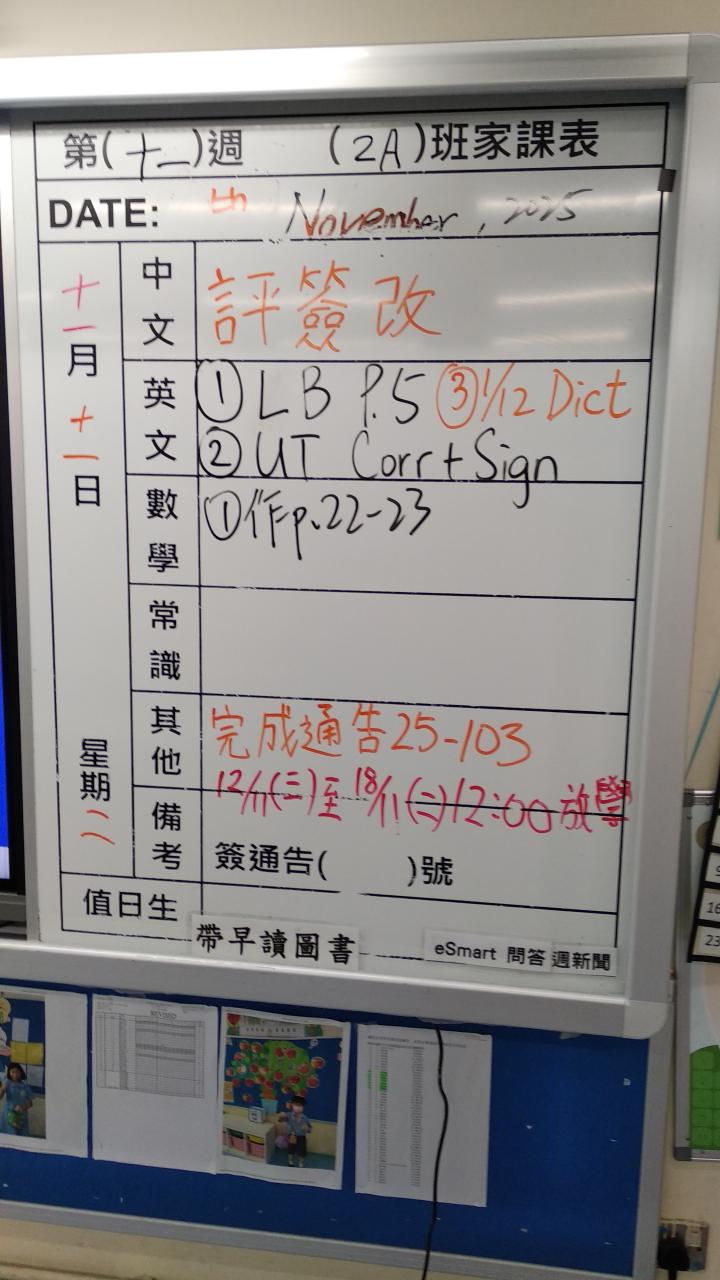 第(十一)週 (2A)班家課表
DATE: th November, 2025
十一月十一日 星期二
中文 評簽改
英文 ①LB P.5 ③1/12 Dict
②UT Corr+Sign
數學 ①作p.22-23
常識
其他 完成通告25-103
12/11(三)至18/11(二)12:00放學
備考 簽通告( )號
值日生
帶早讀圖書 eSmart 問答 週新聞
REVISED
9
16
23